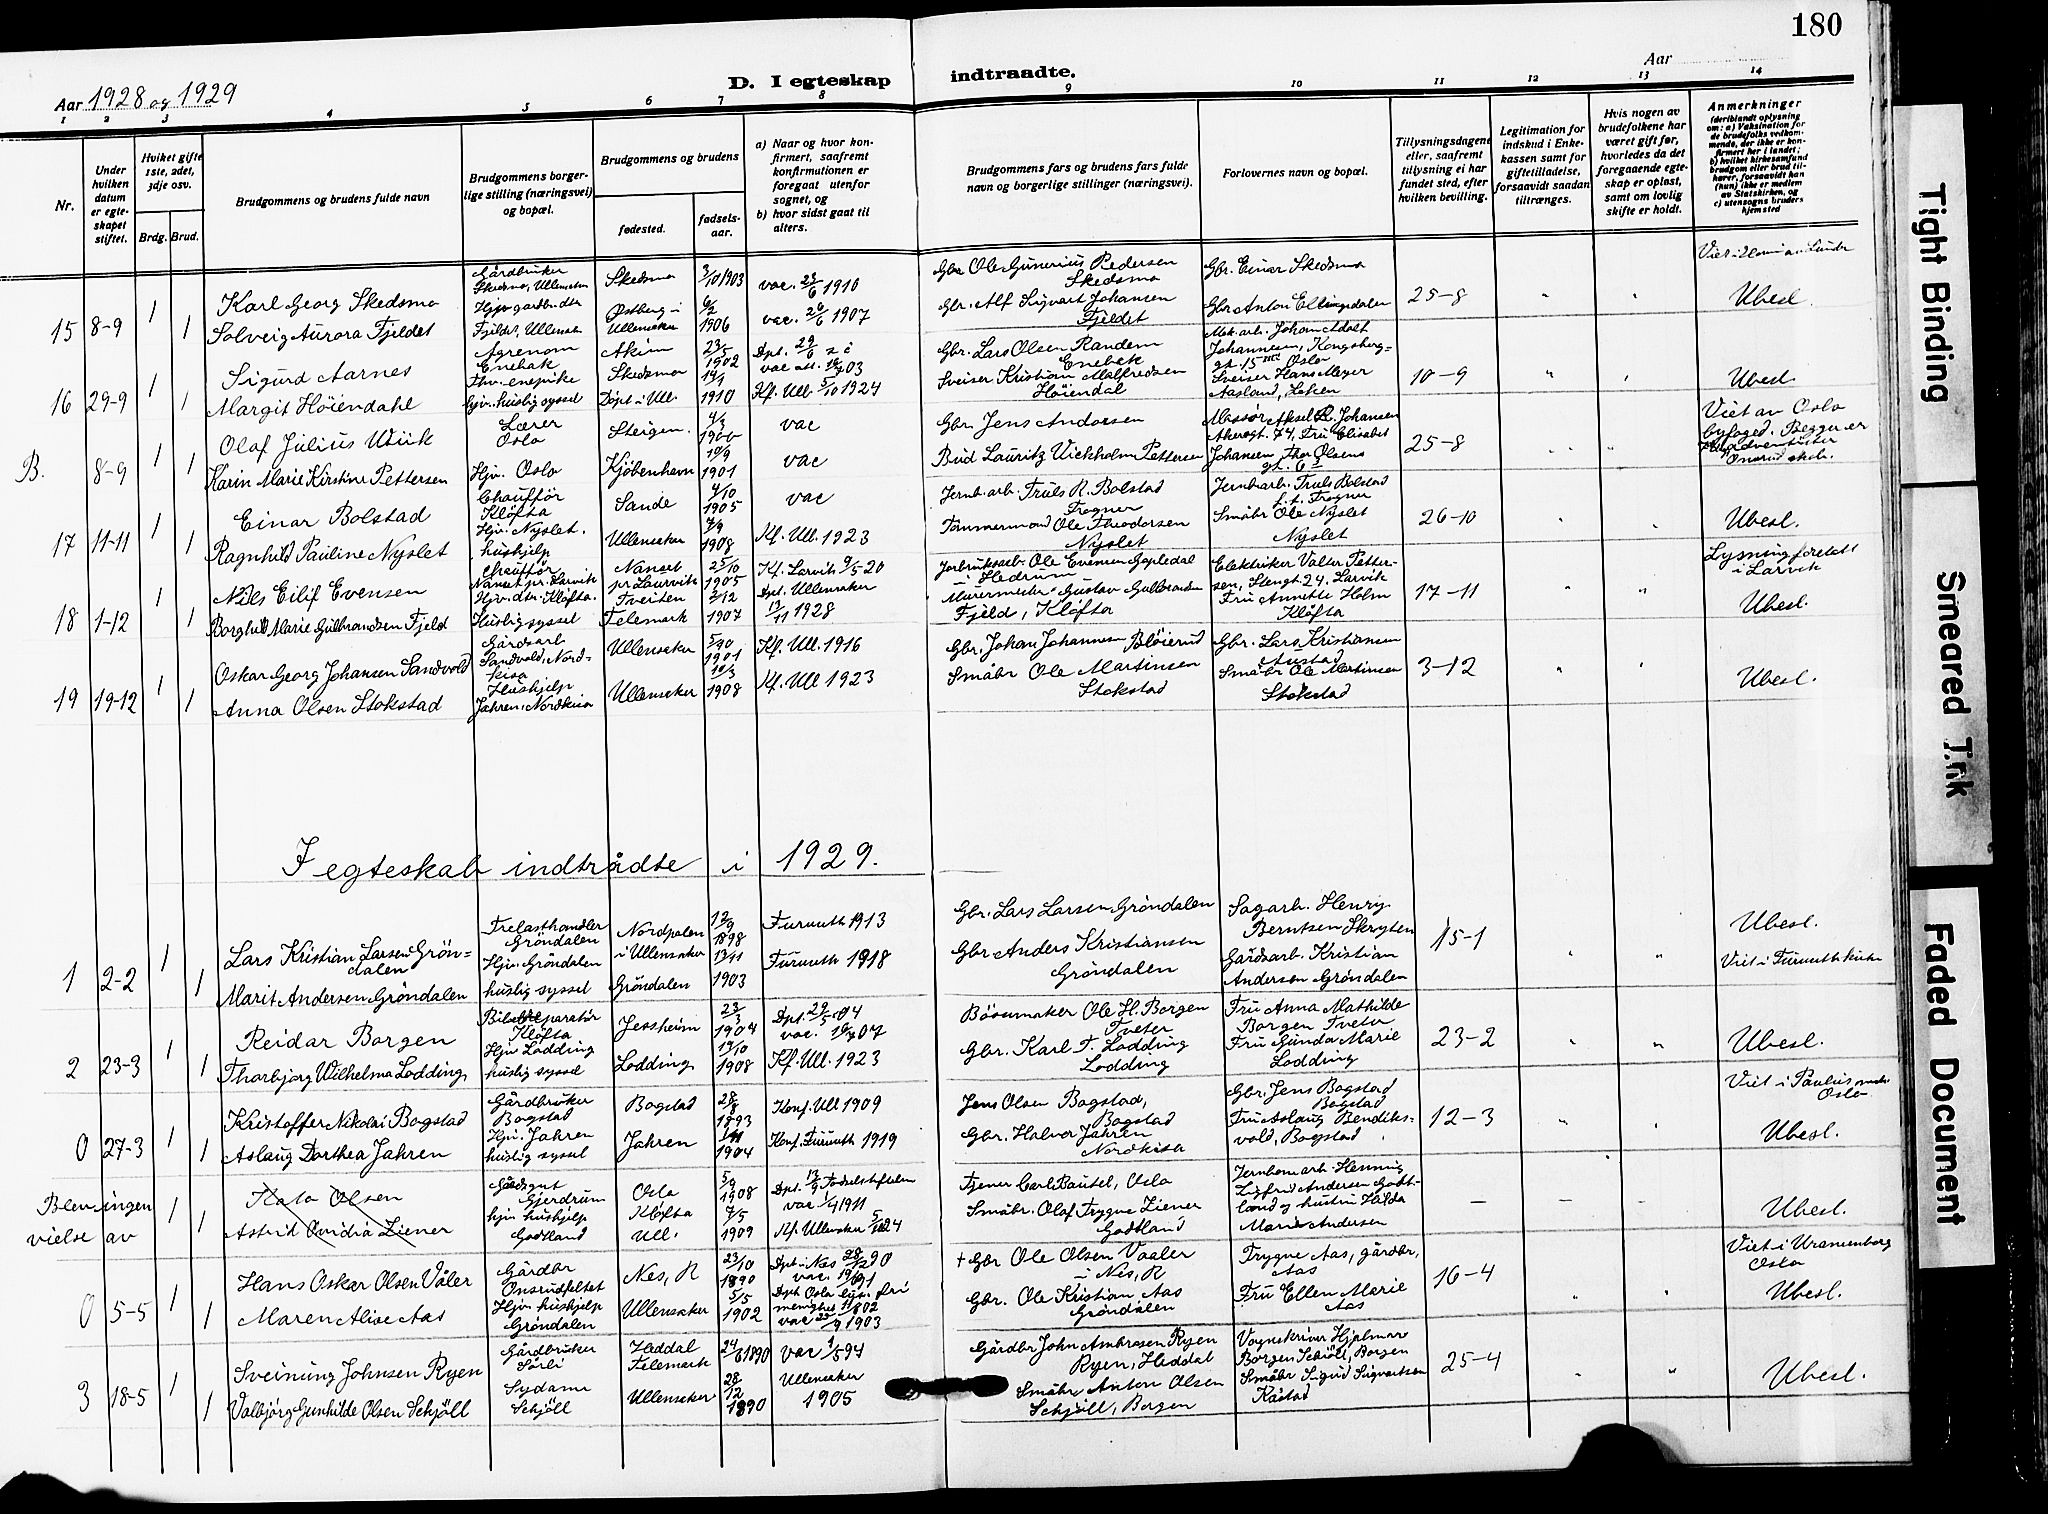 180
Aar 1928 og 1929
D. I egteskap indtraadte.
Aar
1 2 3 4 5 6 7 8 9 10 11 12 13 14
Nr.
Under hvilken datum er egteskapet stiftet.
Hvilket gifte 1ste, 2det, 3dje osv.
Brdg. Brud.
Brudgommens og brudens fulde navn
Brudgommens borgerlige stilling (næringsvei) og bopæl.
Brudgommens og brudens
fødested.
fødselsaar.
a) Naar og hvor konfirmert, saafremt konfirmationen er foregaat utenfor sognet, og
b) hvor sidst gaat til alters.
Brudgommens fars og brudens fars fulde navn og borgerlige stillinger (næringsvei).
Forlovernes navn og bopæl.
Tillysningsdagene eller, saafremt tillysning ei har fundet sted, efter hvilken bevilling.
Legitimation for indskud i Enkekassen samt for giftetilladelse, forsaavidt saadan tiltrænges.
Hvis nogen av brudefolkene har været gift før, hvorledes da det foregaaende egteskap er opløst, samt om lovlig skifte er holdt.
Anmerkninger
(deriblandt oplysning om: a) Vaksination for de brudefolks vedkommende, der ikke er konfirmert her i landet; b) hvilket kirkesamfund brudgom eller brud tilhører, forsaavidt han (hun) ikke er medlem av Statskirken, og c) utensogns bruders hjemsted
15 8-9 1 1
Karl Georg Skedsmo
Solveig Aurora Fjeldet
Gårdbruker
Skedsmo, Ullensaker
Fjeldet, Ullensaker
Skedsmo 3/10 1903 vac. 23/6 1910
Ullensaker 6/2 1906 vac. 26/6 1907
Gbr Ole Gunerius Pedersen
Skedsmo
Gbr. Alf Sigvart Johansen
Fjeldet
Gbr. Einar Skedsmo
Gbr Anton Ellingsdalen
25-8
Ubesl.
16 29-9 1 1
Sigurd Aarnes
Margit Höiendahl
Agronom
Enebak
hjv. huslig syssel
23/5 1902
Skedsmo
Döpt i Ull. 14/1 1910 Kf. Ull. 5/10 1924
Gbr. Lars Olsen Randem
Enebak
Sveiser Kristian Malfredsen
Höiendal
Sveiser Hans Meyer
10-9
Ubesl.
B. 8-9 1 1
Olaf Julius Wiik
Karin Marie Kirstine Pettersen
Lærer
Oslo
Hjv. Oslo
Steigen. 4/3 1900 vac
Kjöbenhavn 10/9 1901 vac
Gbr. Jens Andersen
Bud Lauritz Vickholm Pettersen
Massör Aksel R. Johansen
Akersgt. 74, Fru Elisabet
Johansen, Thor Olsens
gt. 6
25-8
Viet av Oslo
byfoged. Begge er
17 11-11 1 1
Einar Bolstad
Ragnhild Pauline Nyslet
Chauffør
Kløfta
Hjv. Nyslet.
hushjelp
Sande 4/10 1905 vac
Ullensaker 7/9 1908 Kf. Ull. 1923
Jernb. arb. Truls R. Bolstad
Frogner
Tömmermand Ole Theodorsen
Nyslet
Jernb.arb. Truls Bolstad
Frogner
Småbr Ole Nyslet
Nyslet
26-10
Ubesl.
18 1-12 1 1
Nils Eilif Evensen
Borghild Marie Gulbrandsen Fjeld
Chauffør
Nanset pr. Larvik
Hjv. dtr. Kløfta.
Huslig syssel
Nanset
pr Laurvik 25/10 1905
Tveiten
Telemark 2/12 1907
Kf. Larvik 9/5-20
Dpt. Ullensaker
13/11 1928
Murermester Gustav Gulbrandsen
Fjeld, Kløfta
Elektriker Valter Pettersen, Stengt. 24. Larvik
Fru Annette Holm
Kløfta
17-11
Lysning foretatt
i Larvik
Ubesl.
19 19-12 1 1
Oskar Georg Johansen Sandvold
Anna Olsen Stokstad
Gårdsarb
Sandvold, Nordkisa
Hushjelp
Jahren, Nordkisa
Ullensaker 1901 Kf. Ull. 1916
Ullensaker 10/3 1908 Kf. Ull 1923
Gbr. Johan Johannesen Blöierud
Småbr Ole Martinsen
Stokstad
Gbr. Lars Kristiansen
Austad
Småbr Ole Martinsen
Stokstad
3-12
Ubesl.
I egteskab indtrådte i 1929.
1 2-2 1 1
Lars Kristian Larsen Gröndalen
Marit Andersen Gröndalen
Trelasthandler
Gröndalen
Hjv. Gröndalen
huslig syssel
Nordpolen
i Ullensaker 12/9 1898 Furuseth 1913
Gröndalen 13/11 1903 Furuseth 1918
Gbr. Lars Larsen Gröndalen
Gbr Anders Kristiansen
Gröndalen
Sagarb. Henry
Berntsen Skryten
Gårdsarb. Kristian
Andersen Gröndalen
15-1
Ubesl.
Viet i Furuseth kirke
2 23-3 1 1
Reidar Borgen
Thorbjørg Wilhelma Lodding
Bilreparatør
Kløfta
Hjv Lodding
huslig syssel
Jessheim 23/3 1904
Lodding 19/10 1908 Kf. Ull. 1923
Bössemaker Ole H. Borgen
Tveter
Gbr. Karl T. Lodding
Lodding
Fru Anna Mathilde
Borgen Tveter
Fru Gunda Marie
Lodding
23-2
Ubesl.
0 27-3 1 1
Kristoffer Nikolai Bogstad
Aslaug Dorthea Jahren
Gårdbruker
Bogstad
Hjv. Jahren
huslig syssel
Bogstad 28/8 1893 Konf. Ull 1909
Jahren 1904 Konf. Furuseth 1919
Jens Olsen Bogstad,
Bogstad
Gbr. Halvor Jahren
Nordkisa
Gbr. Jens Bogstad
Bogstad
Fru Aslaug Bendiksvold, Bogstad
12-3
Viet i Paulus
Oslo
Ubesl.
Blev ingen
vielse av
1 1
Olsen
Astrid Ovidia Ziener
Gårdsgut
Gjerdrum
hjv hushjelp
Godtland
Oslo 5/9 1908
Kløfta
Ull. 7/5 1909
Dpt. 13/9 Fødselstiftelsen
vac 1/4 1911
Kf. Ullensaker
Tjener Carl Bautsel, Oslo
Småbr. Olaf Trygve Ziener
Godtland
Jernbanearb. Henning
Zigfrid Andersen Godtland og hustru Hilda
Marie Andersen
Ubesl.
0 5-5 1 1
Hans Oskar Olsen Våler
Maren Alise Aas
Gårdbr
Onsrudfeltet
Hjv. hushjelp
Gröndalen
Nes, R 23/10 1890
Ullensaker 5/5 1902
Dpt i Nes 28/12 90
menighet
vac 1903
+ Gbr Ole Olsen Vaaler
i Nes, R
Gbr. Ole Kristian Aas
Gröndalen
Trygve Aas, gårdbr,
Aas
Fru Ellen Marie
Aas
16-4
Viet i Uranienborg
Oslo
Ubesl.
3 18-5 1 1
Sveinung Johnsen Ryen
Valbjörg Gunhilde Olsen Schjöll
Gårdbruker
Sydame
Schjöll
Heddal
Telemark 24/6 1890 Vac 1/5 94
Ullensaker 28/12 1890 Ullensaker
1905
Gårdbr John Ambrosen Ryen
Ryen, Heddal
Småbr Anton Olsen
Schjöll, Borgen
Vognskriver Hjalmar
Borgen Schjöll, Borgen
Småbr Sigurd Sigvartsen
Kåstad
25-4
Ubesl.
Tight Binding
Smeared Ink
Faded Document